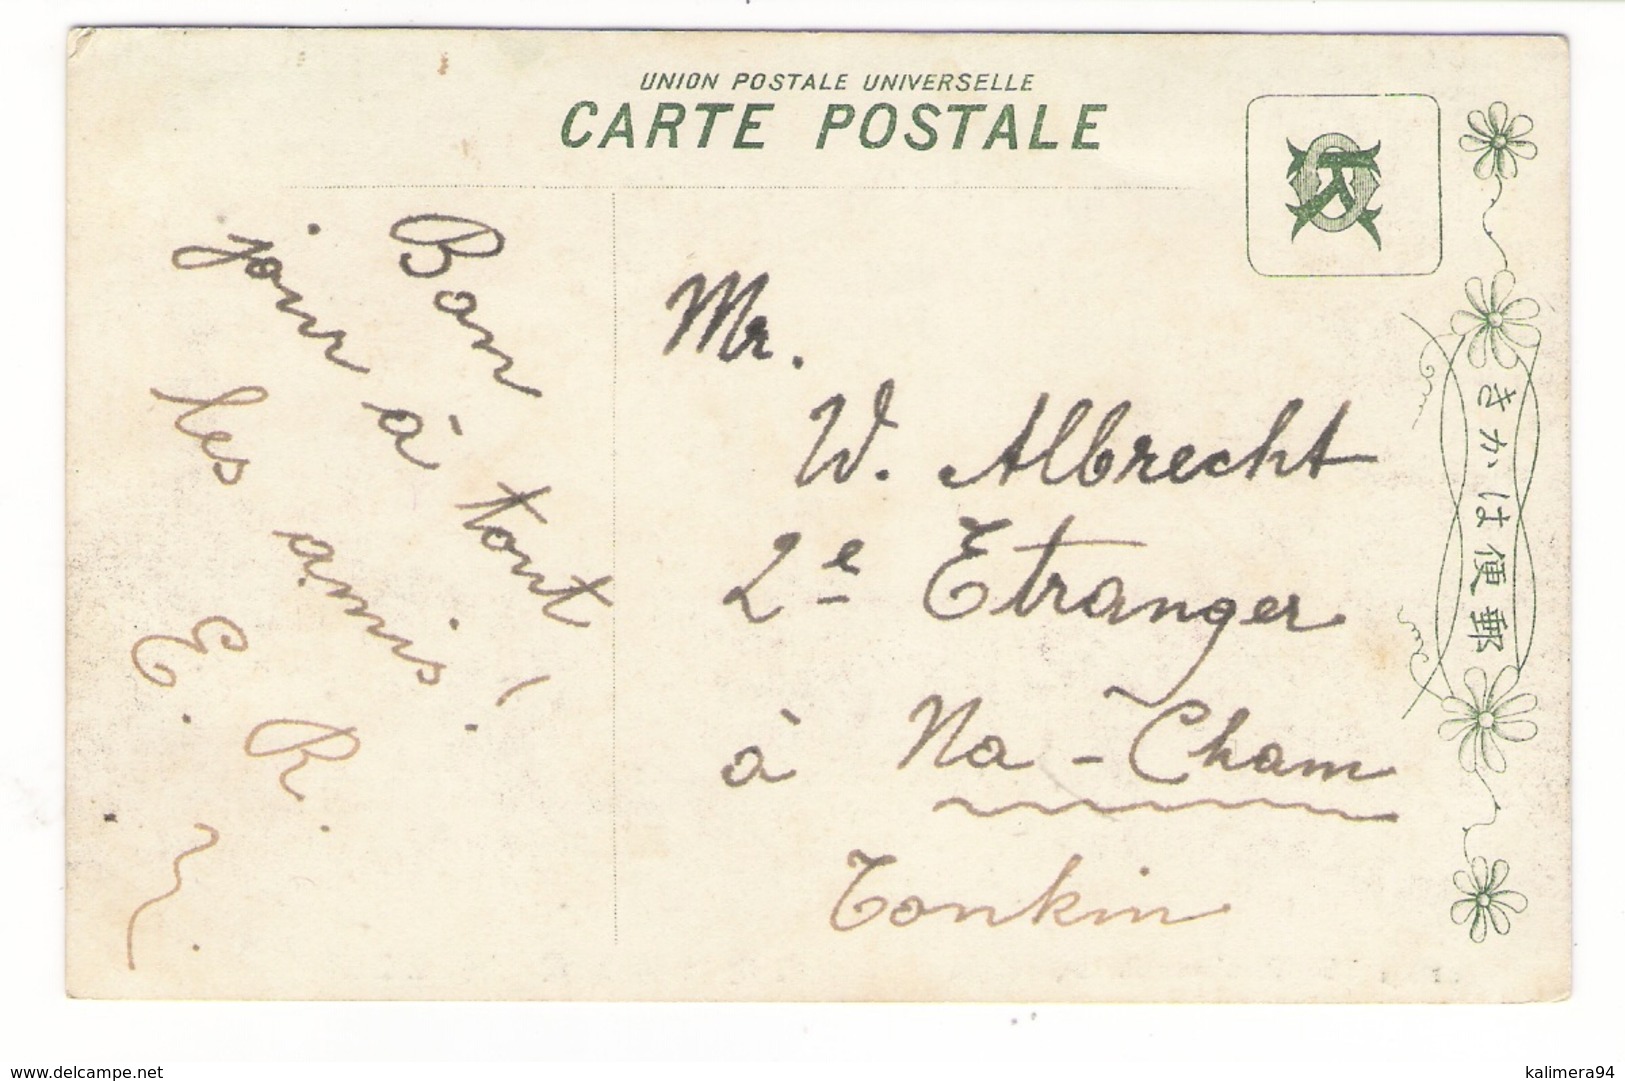 UNION POSTALE UNIVERSELLE
CARTE POSTALE
Bon
jour à tout
les amis!
E. R.
Mr.
W. Albrecht
2e Etranger
à Na-Cham
Tonkin
きかは便郵
www.delcampe.net
kalimera94